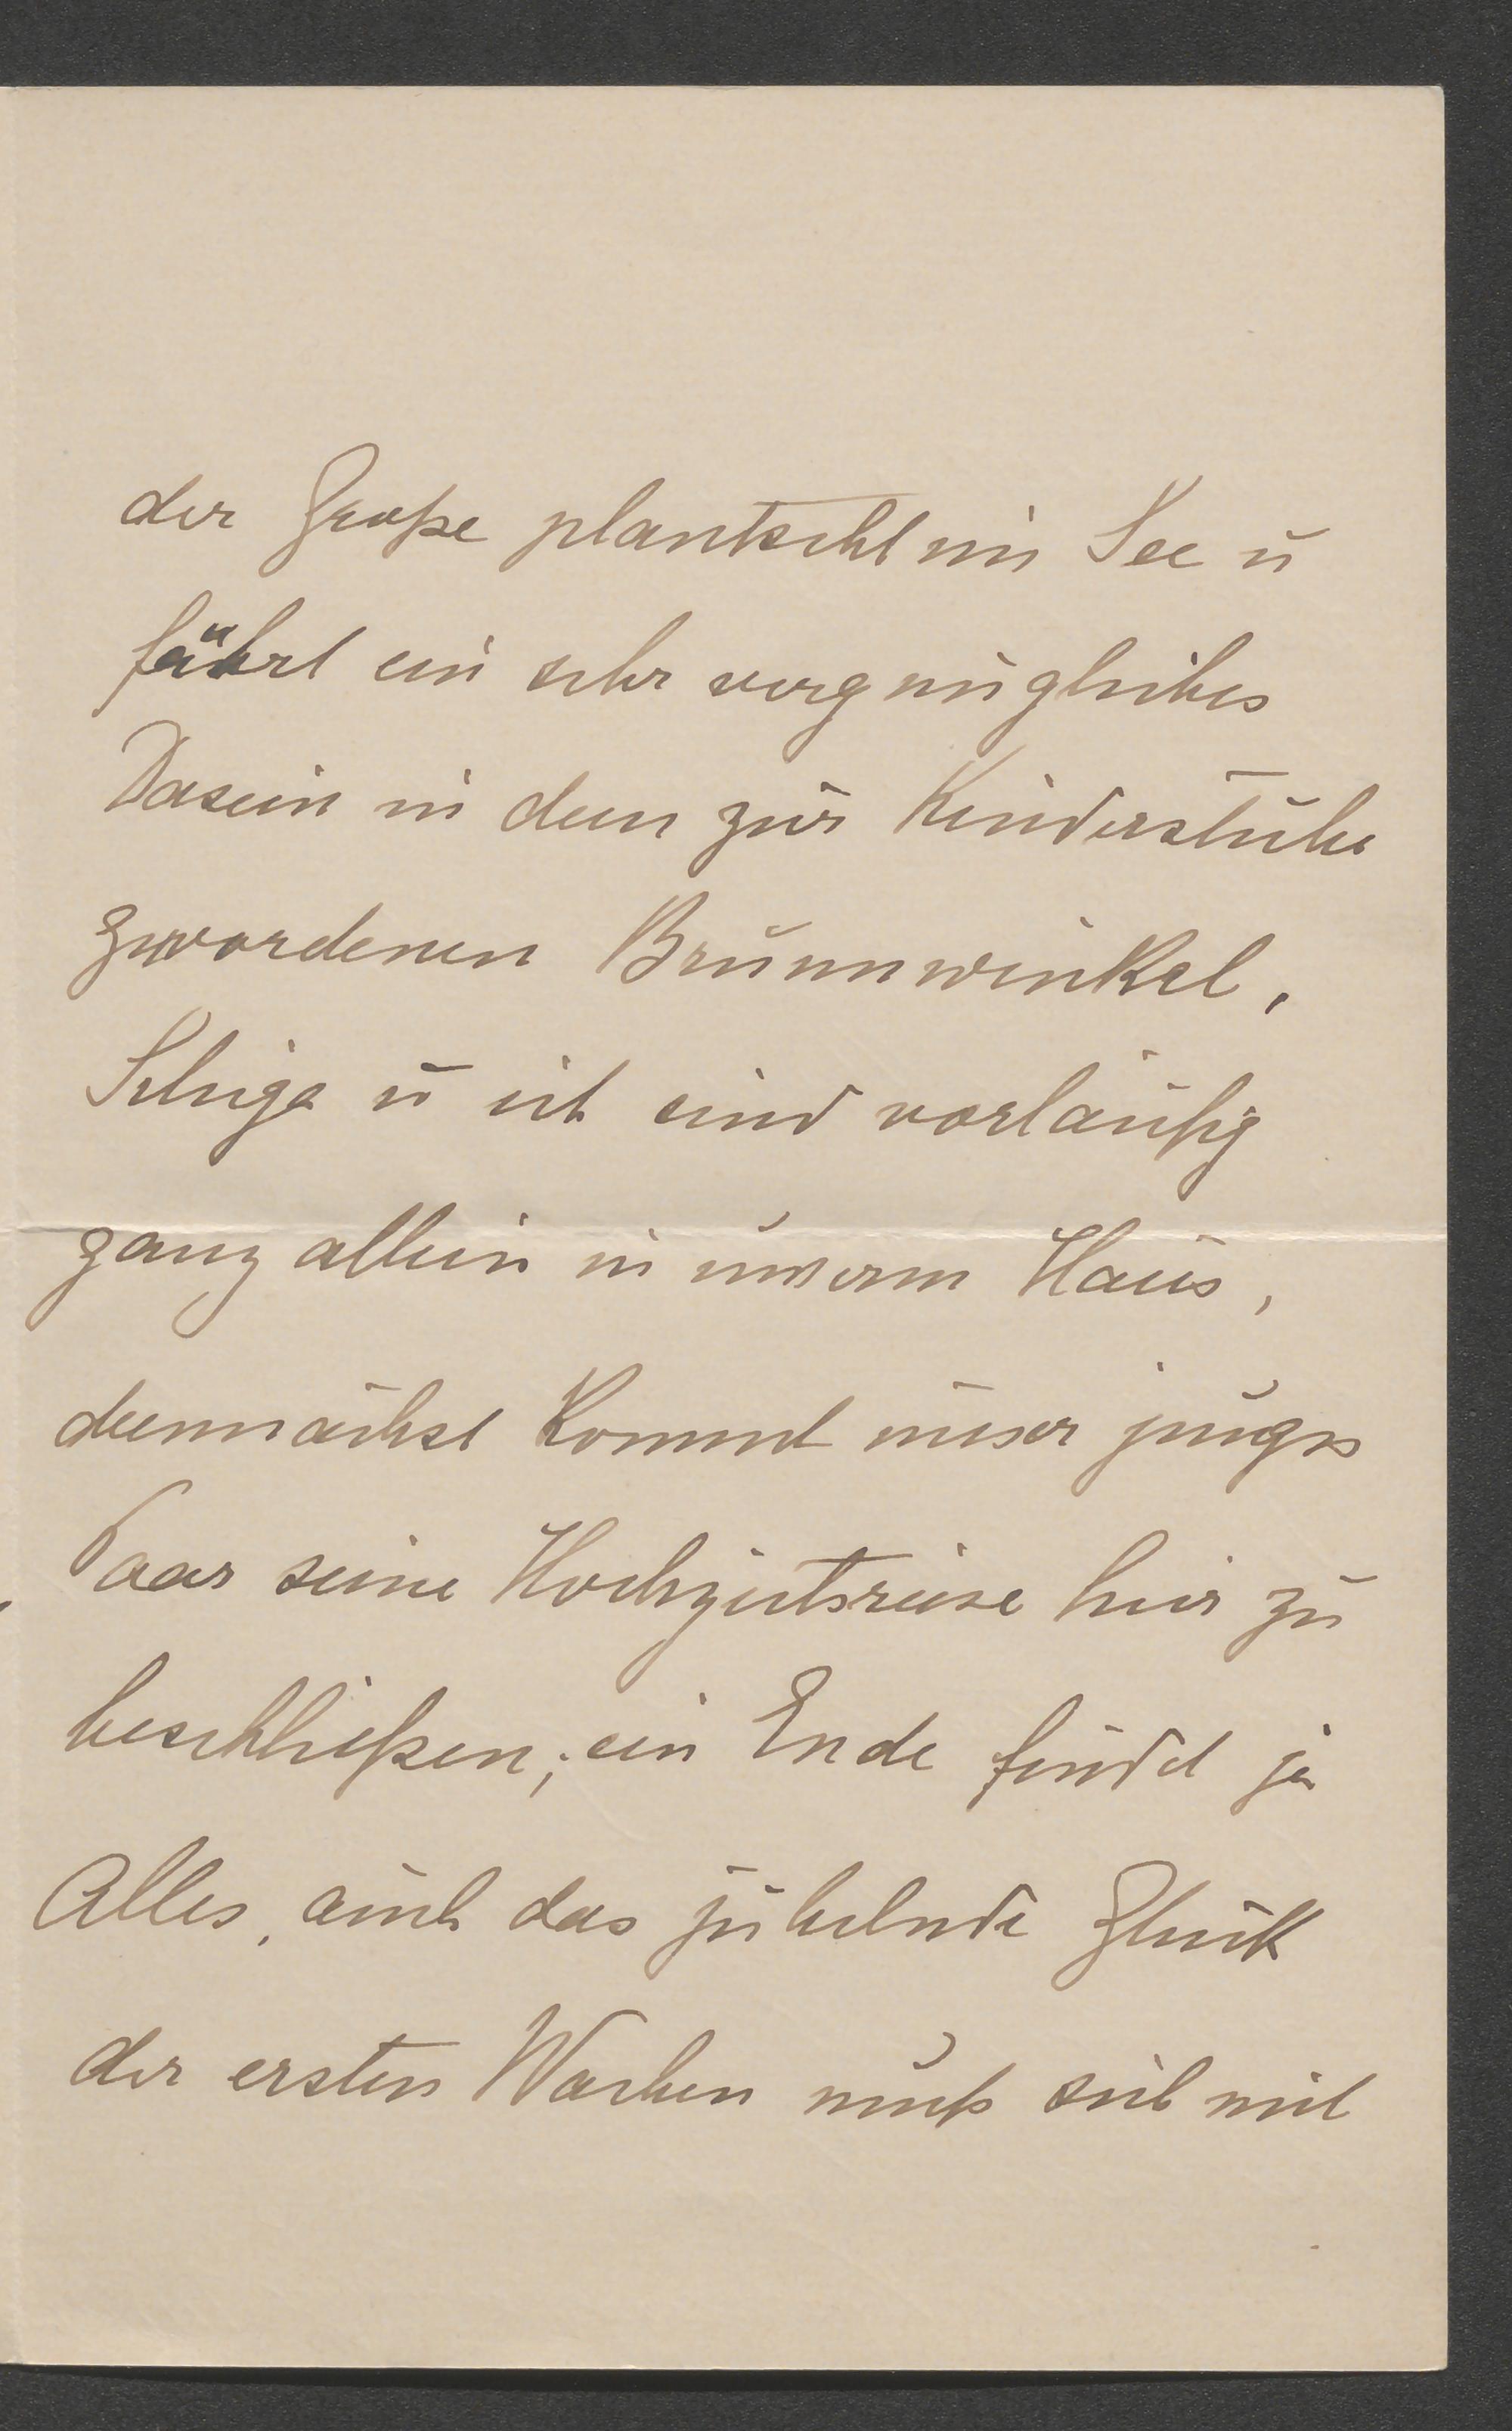 der Große plantscht im See u
führt ein sehr vergnügliches
Dasein in dem zur Kinderstube
gewordenen Brunnwinkel.
u ich sind vorläufig
ganz allein in unserm Haus,
demnächst kommt unser junges
Paar seine Hochzeitsreise hier zu
beschließen; ein Ende findet ja
Alles, auch das jubelnde Glück
der ersten Wochen muß sich mit